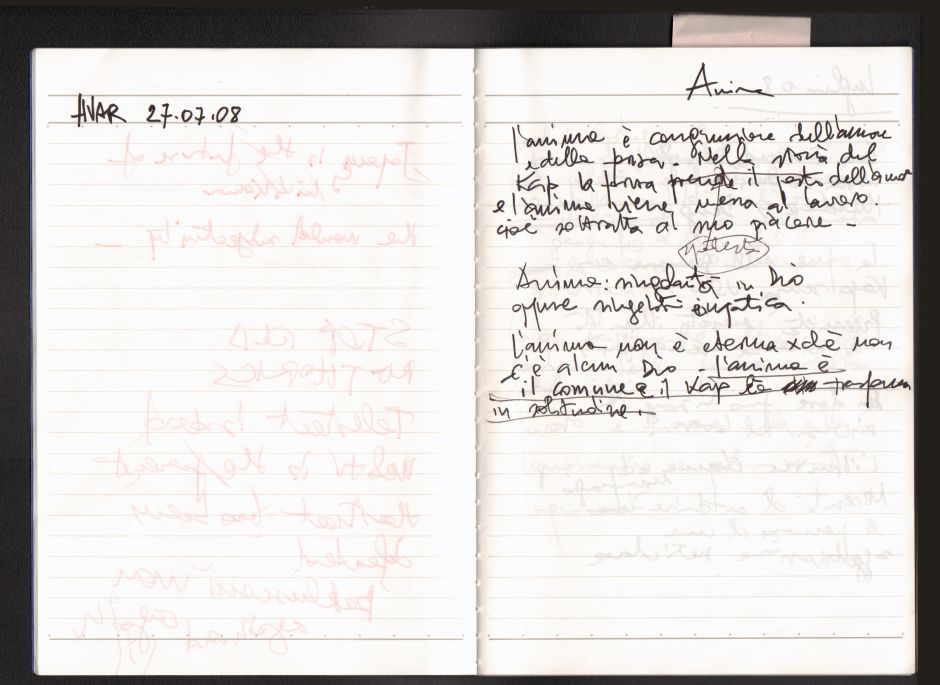 HVAR 27.07.08
Anima
l'anima è congiunzione dell'amore
e della forza. Nella storia del
Kap la forza prende il posto dell'amore
e l'anima viene messa al lavoro.
cioè sottratta al suo piacere -
Anima: singolarità in Dio
oppure singolarità empatica.
l'anima non è eterna xchè non
c'è alcun Dio - l'anima è
il comune e il Kap la trasforma
in solitudine.